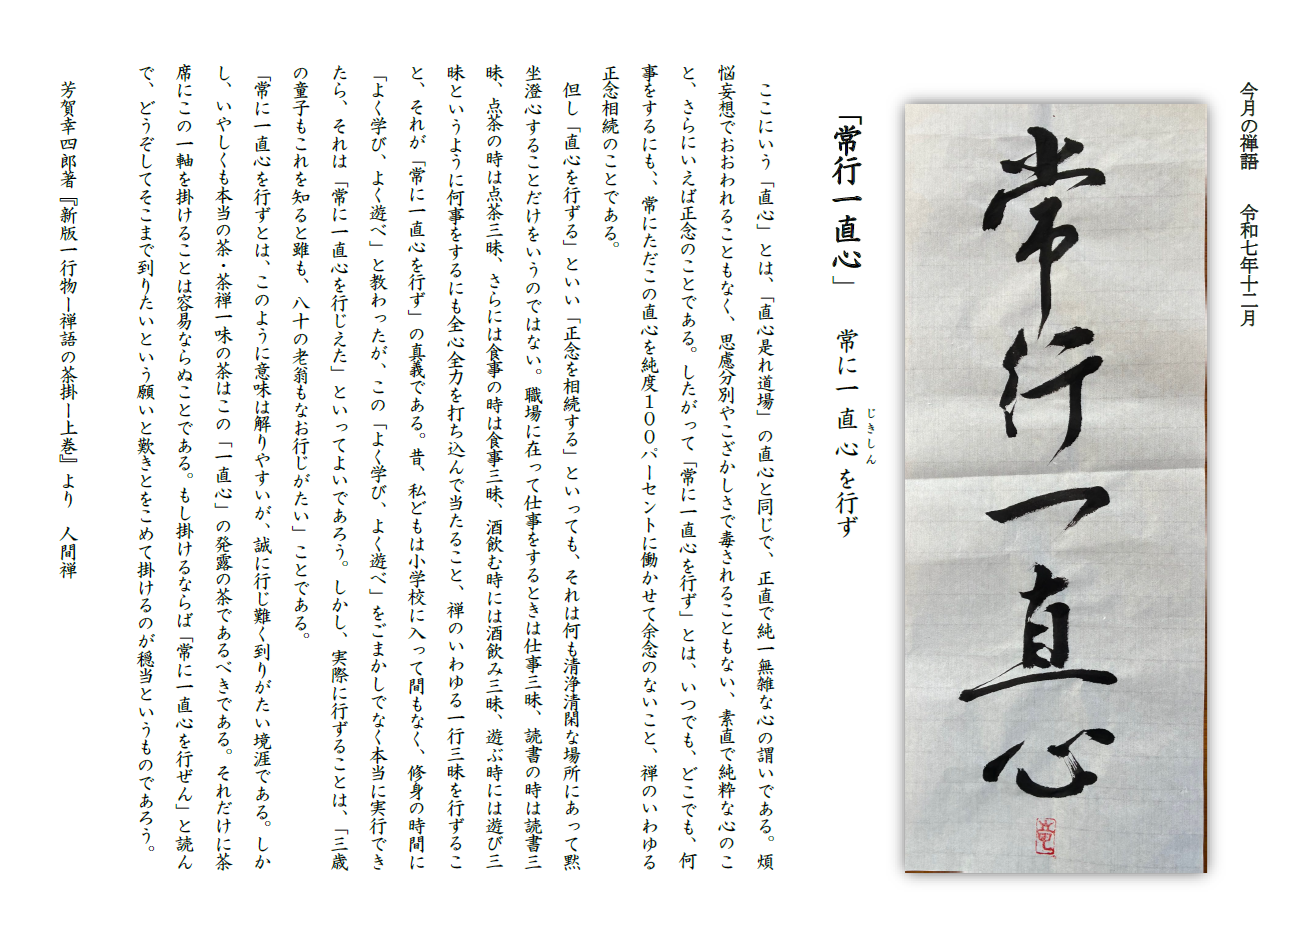 今月の禅語　令和七年十二月
常行一直心
「常行一直心」　常に一直心を行ず
じきしん
ここにいう「直心」とは、「直心是れ道場」の直心と同じで、正直で純一無雑な心の謂いである。煩
悩妄想でおおわれることもなく、思慮分別やこざかしさで毒されることもない、素直で純粋な心のこ
と、さらにいえば正念のことである。したがって「常に一直心を行ず」とは、いつでも、どこでも、何
事をするにも、、常にただこの直心を純度１００パーセントに働かせて余念のないこと、禅のいわゆる
正念相続のことである。
但し「直心を行ずる」といい「正念を相続する」といっても、それは何も清浄清閑な場所にあって黙
坐澄心することだけをいうのではない。職場に在って仕事をするときは仕事三昧、読書の時は読書三
昧、点茶の時は点茶三昧、さらには食事の時は食事三昧、酒飲む時には酒飲み三昧、遊ぶ時には遊び三
昧というように何事をするにも全心全力を打ち込んで当たること、禅のいわゆる一行三昧を行ずるこ
と、それが「常に一直心を行ず」の真義である。昔、私どもは小学校に入って間もなく、修身の時間に
「よく学び、よく遊べ」と教わったが、この「よく学び、よく遊べ」をごまかしでなく本当に実行でき
たら、それは「常に一直心を行じえた」といってよいであろう。しかし、実際に行ずることは、「三歳
の童子もこれを知ると雖も、八十の老翁もなお行じがたい」ことである。
「常に一直心を行ずとは、このように意味は解りやすいが、誠に行じ難く到りがたい境涯である。しか
し、いやしくも本当の茶・茶禅一味の茶はこの「一直心」の発露の茶であるべきである。それだけに茶
席にこの一軸を掛けることは容易ならぬことである。もし掛けるならば「常に一直心を行ぜん」と読ん
で、どうぞしてそこまで到りたいという願いと歎きとをこめて掛けるのが穏当というものであろう。
芳賀幸四郎著『新版一行物ー禅語の茶掛ー上巻』より　人間禅